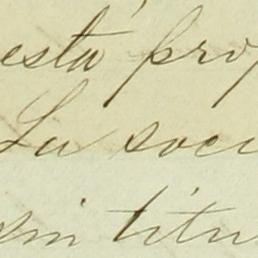 está pro
La soci
sin titu